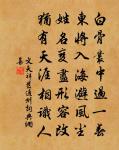 白骨叢中過一春
東將入海避風塵
姓名變盡形容改
猶有天涯相識人
文天祥 通州 詞典網